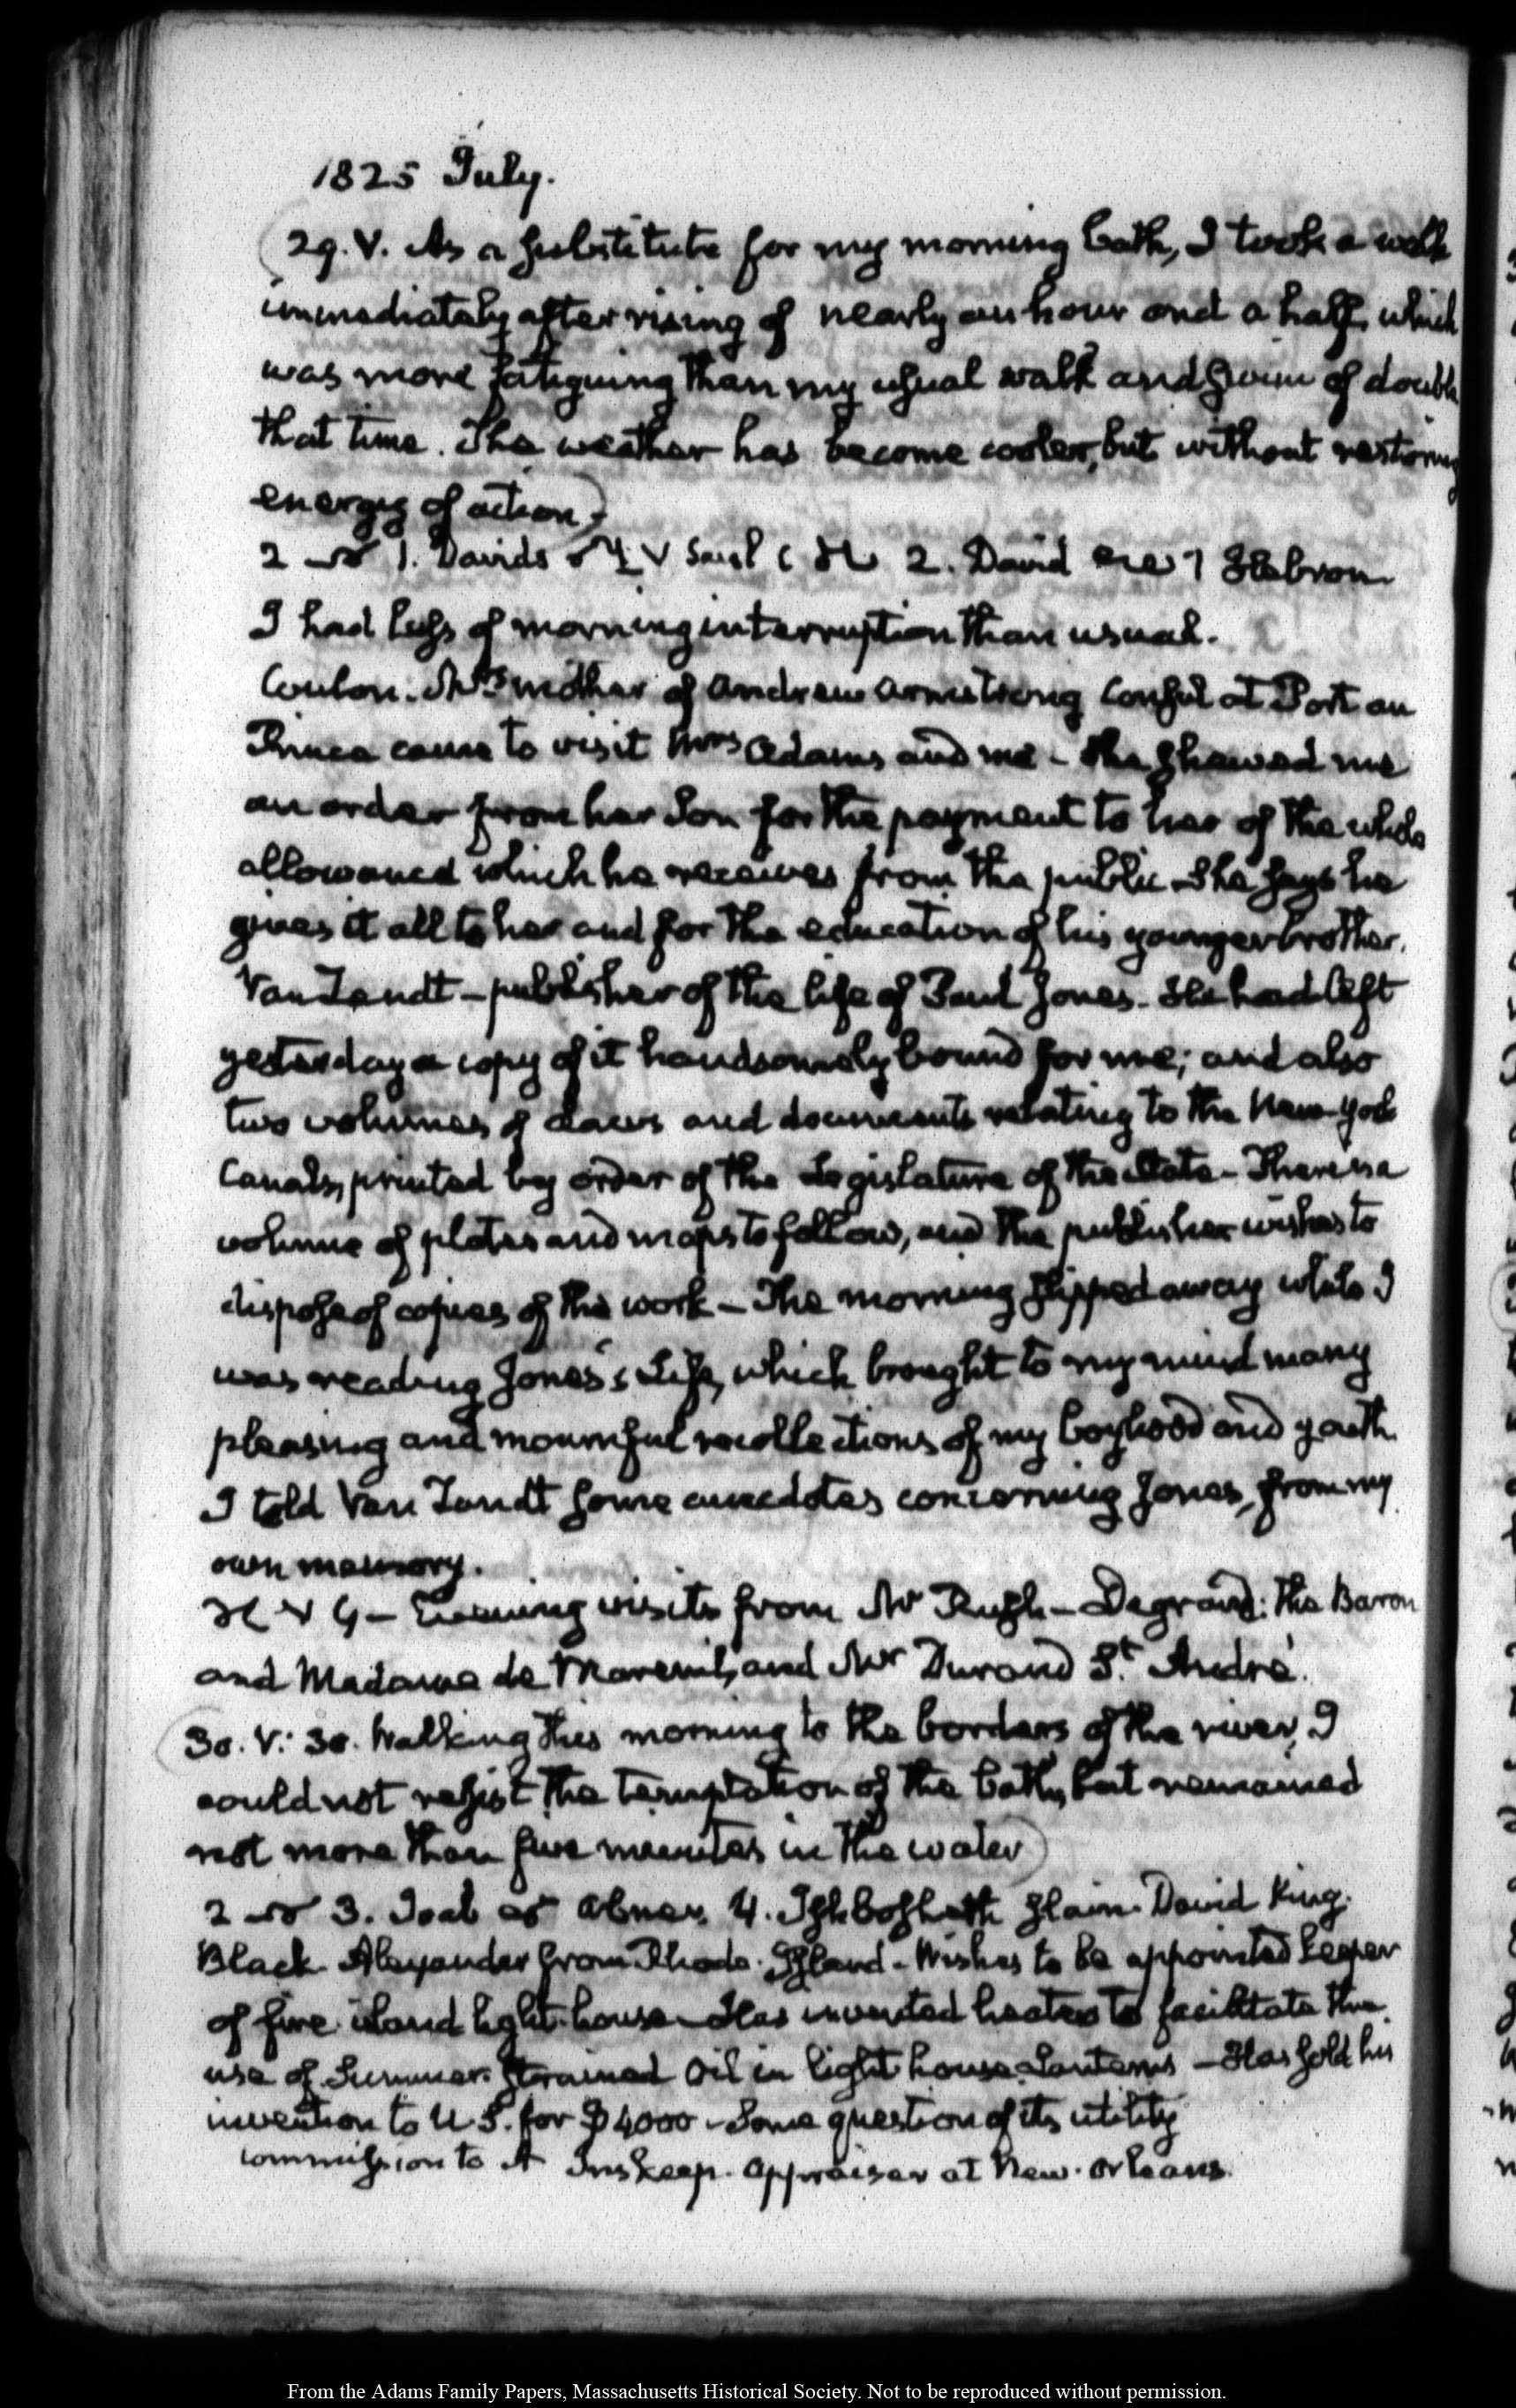 1825 July.
29. V. As a substitute for my morning bath, I took a walk
immediately after rising of nearly an hour and a half, which
was more fatiguing than my usual walk and swim of double
that time. The weather has become cooler, but without restoring
energy of action.
2 1. Davids V Saul 2. David Hebron
I had less of morning interruption than usual.
Coulon. Mrs mother of Andrew Armstrong Consul at Port au
Prince came to visit Mrs Adams and me - She shewed me
an order from her Son for the payment to her of the whole
allowance which he receives from the public - She says he
gives it all to her and for the education of his younger brother.
Van Zandt - publisher of the life of Paul Jones - He had left
yesterday a copy of it handsomely bound for me; and also
two volumes of Laws and documents relating to the New-York
Canals, printed by order of the Legislature of the State - There is a
volume of plates and maps to follow, and the publisher wishes to
dispose of copies of the work - The morning slipped away while I
was reading Jones's Life, which brought to my mind many
pleasing and mournful recollections of my boyhood and youth.
I told Van Zandt some anecdotes concerning Jones, from my
own memory.
Evening visits from Mr Rush - Degrand: the Baron
and Madame de Mareuil, and Mr Durand St. André.
30. V: 30. Walking this morning to the borders of the river, I
could not resist the temptation of the bath, but remained
not more than five minutes in the water
2 3. Joab Abner. 4. Ishbosheth slain. David King.
Black Alexander from Rhode-Island - Wishes to be appointed keeper
of fire island light-house - Has invented heater to facilitate the
use of Summer strained Oil in light house Lanterns - Has sold his
invention to U.S. for $4000 - Some question of its utility
Commission to A Inskeep. Appraiser at New-Orleans.
From the Adams Family Papers, Massachusetts Historical Society. Not to be reproduced without permission.